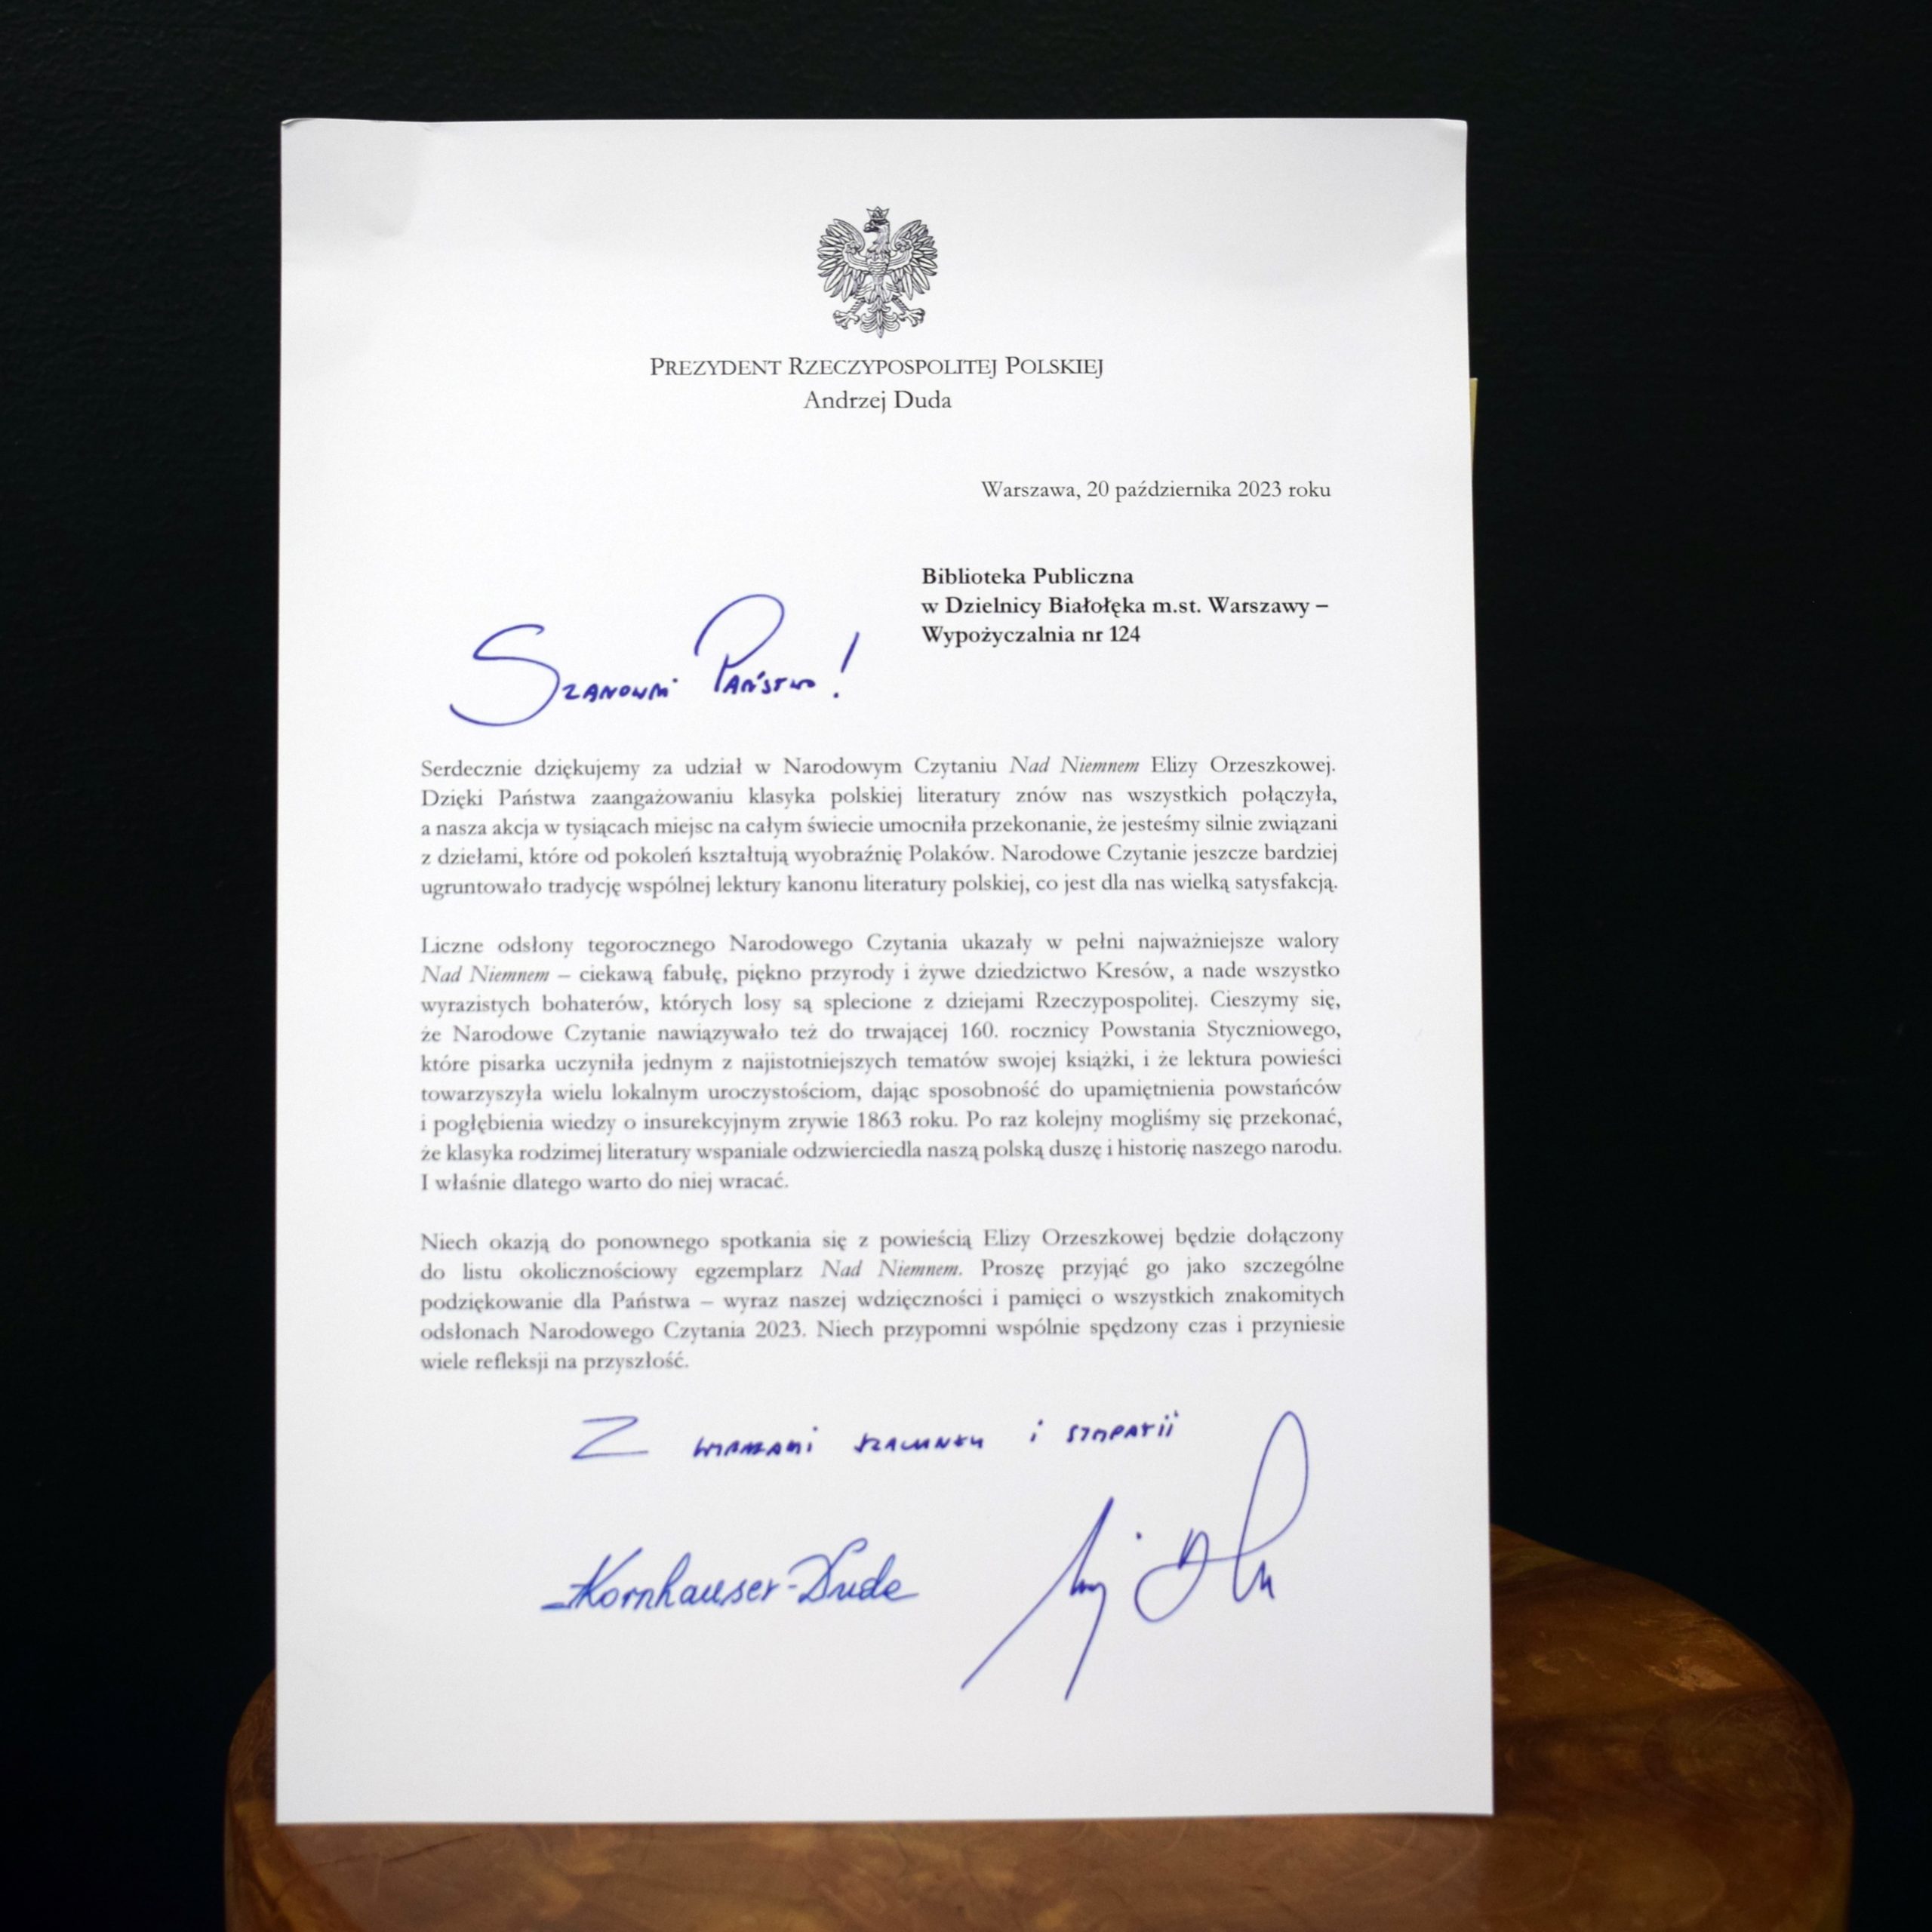 PREZYDENT RZECZYPOSPOLITEJ POLSKIEJ
Andrzej Duda
Warszawa, 20 października 2023 roku
Biblioteka Publiczna
w Dzielnicy Białołęka m.st. Warszawy –
Wypożyczalnia nr 124
Szanowni Państwo!
Serdecznie dziękujemy za udział w Narodowym Czytaniu Nad Niemnem Elizy Orzeszkowej.
Dzięki Państwa zaangażowaniu klasyka polskiej literatury znów nas wszystkich połączyła,
a nasza akcja w tysiącach miejsc na całym świecie umocniła przekonanie, że jesteśmy silnie związani
z dziełami, które od pokoleń kształtują wyobraźnię Polaków. Narodowe Czytanie jeszcze bardziej
ugruntowało tradycję wspólnej lektury kanonu literatury polskiej, co jest dla nas wielką satysfakcją.
Liczne odsłony tegorocznego Narodowego Czytania ukazały w pełni najważniejsze walory
Nad Niemnem – ciekawą fabułę, piękno przyrody i żywe dziedzictwo Kresów, a nade wszystko
wyrazistych bohaterów, których losy są splecione z dziejami Rzeczypospolitej. Cieszymy się,
że Narodowe Czytanie nawiązywało też do trwającej 160. rocznicy Powstania Styczniowego,
które pisarka uczyniła jednym z najistotniejszych tematów swojej książki, i że lektura powieści
towarzyszyła wielu lokalnym uroczystościom, dając sposobność do upamiętnienia powstańców
i pogłębienia wiedzy o insurekcyjnym zrywie 1863 roku. Po raz kolejny mogliśmy się przekonać,
że klasyka rodzimej literatury wspaniale odzwierciedla naszą polską duszę i historię naszego narodu.
I właśnie dlatego warto do niej wracać.
Niech okazją do ponownego spotkania się z powieścią Elizy Orzeszkowej będzie dołączony
do listu okolicznościowy egzemplarz Nad Niemnem. Proszę przyjąć go jako szczególne
podziękowanie dla Państwa – wyraz naszej wdzięczności i pamięci o wszystkich znakomitych
odsłonach Narodowego Czytania 2023. Niech przypomni wspólnie spędzony czas i przyniesie
wiele refleksji na przyszłość.
Z wyrazami szacunku i sympatii
Kornhauser-Duda